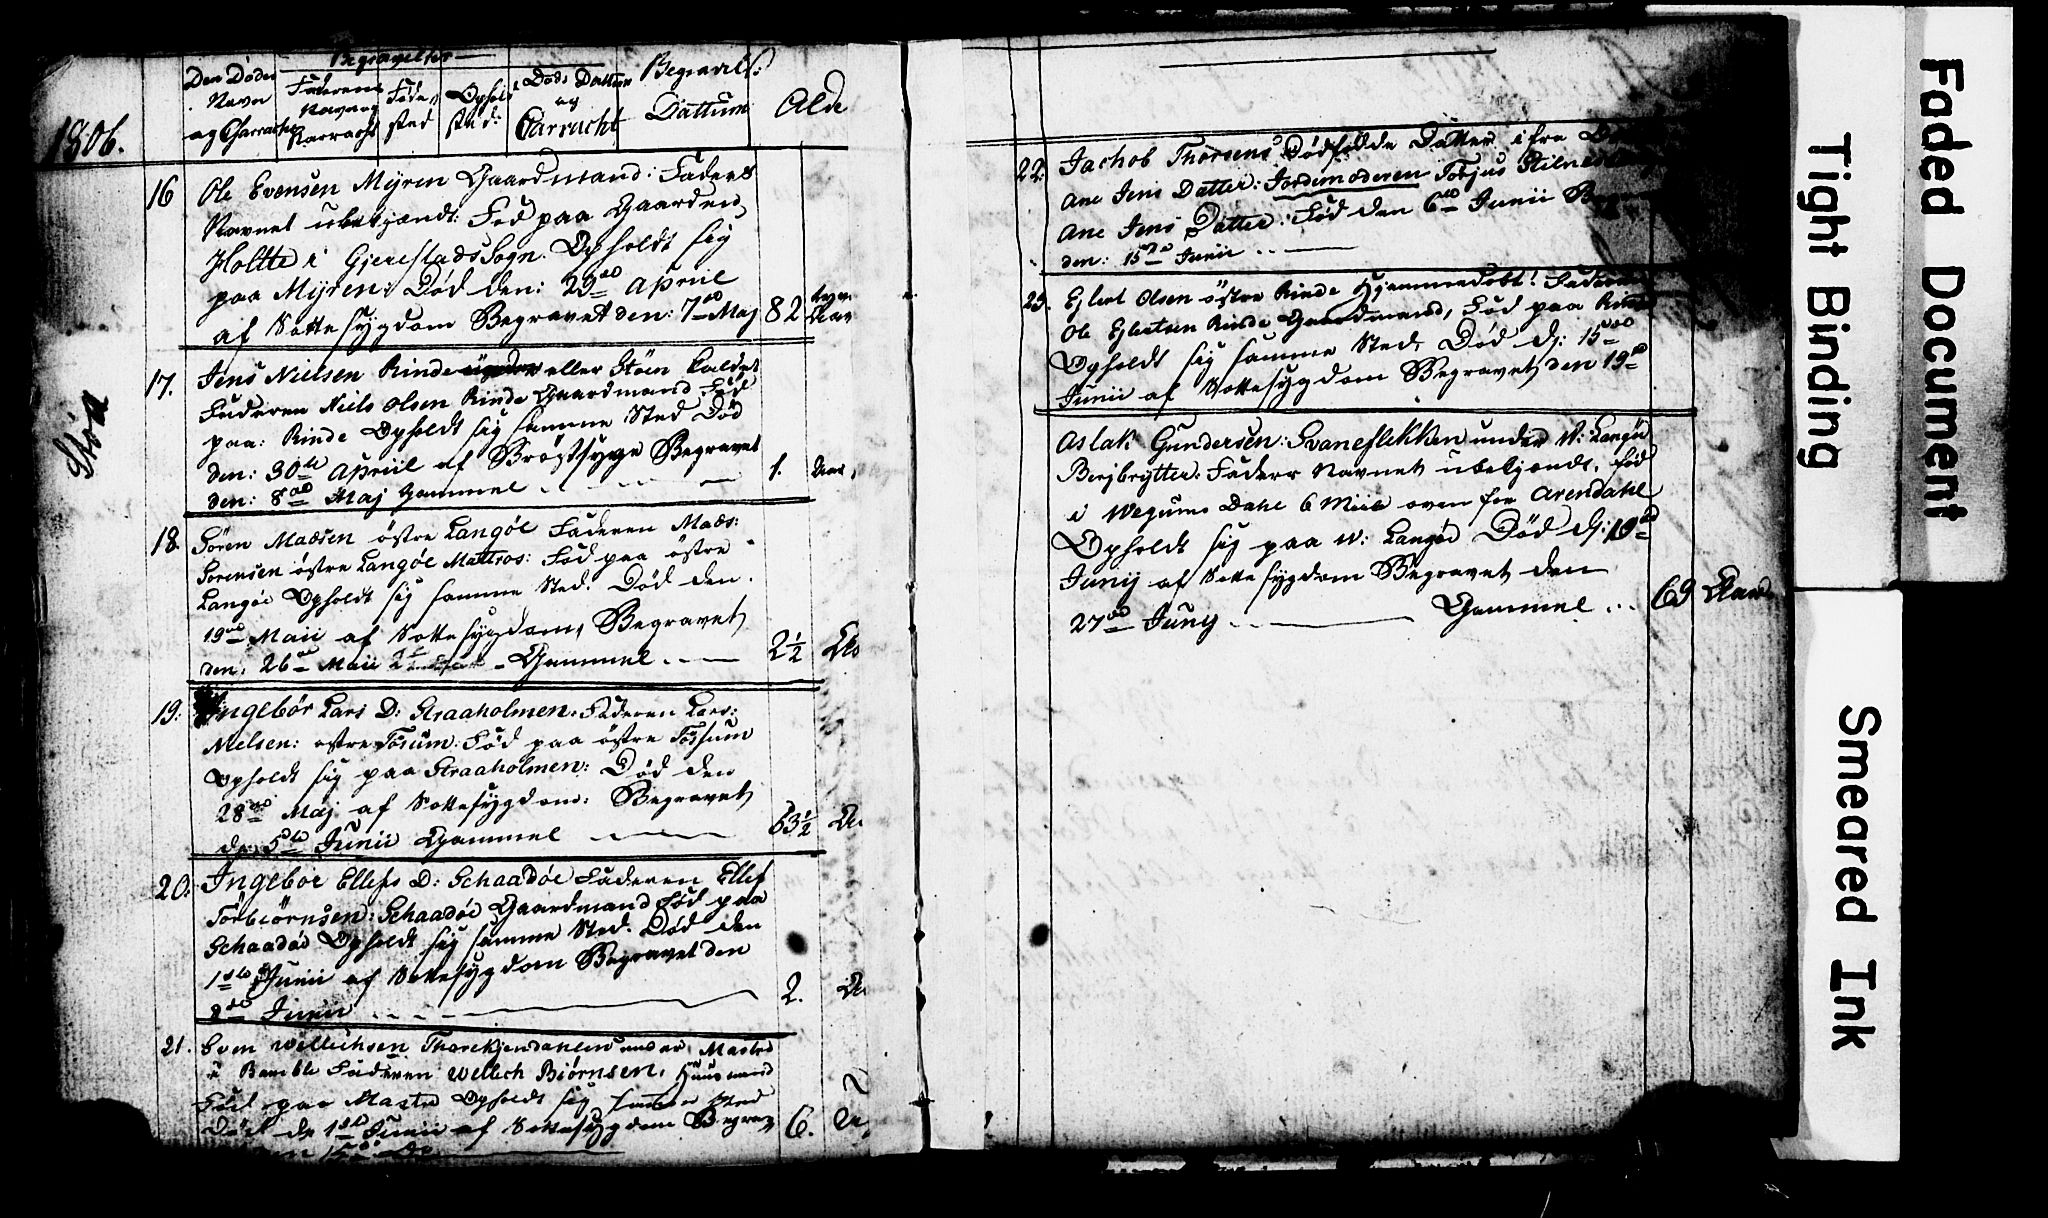 Begravelser
Den Dødes Navn og Charracter
Faderens Navn og Karracht
Føde sted
Ophold sted:
Døds Dattum og Carracht
Begravels: Dattum
Alde
1806.
16 Ole Evensen Myren Gaardmand: Faders
Navnet ubekjendt: Fød paa Gaarden
Holtte i Gjerestads Sogn. Opholdt sig
paa Myren: Død den: 29de Apriil
af Sottesygdom Begravet den: 7de Maj 82 Aar
Støa
17. Jens Nielsen Rinde eller Støen kaldet
Faderen Niels Olsen Rinde Gaardmand Fød
paa: Rinde Opholdt sig samme Sted Død
den: 30te Apriil af Brøstsyge Begravet
den: 8de Maj Gammel 1. Aar
18. Søren Madsen østre Langøe Faderen Mads:
Sørensen østre Langøe Mattros: Fød paa østre
Langøe Opholdt sig samme Sted. Død den
19de Maii af Sottesygdom, Begravet
den: 26de Maii Gammel 2½
19. Ingebør Lars D: Straaholmen. Faderen Lars:
Nielsen: østre Tosum: Fød paa østre Fossum
Opholdt sig paa Straaholmen: Død den
28de Maj af Sottesygdom: Begravet
d: 5te Junii Gammel 63½
20. Ingeboe Ellefs D: Schaadøe Faderen Ellef
Torbiørnsen: Schaadøe Gaardmand Fød paa
Schaadøe Opholdt sig samme Sted. Død den
1ste Junii af Sottesygdom Begravet den
8de Junii 2.
21. Sven Wellichsen under Mastre
i Bamble Faderen Wellich Biørnsen, Huusmand
Fød paa Mastre Opholdt sig samme Sted
Død d: 1ste Junii af Sottesygdom Begrav 6.
22. Jachob Thorsens Dødfødde Datter ifra
Ane Jens Datter: Jordemoderen Torjus
Ane Jens Datter: Fød den 6te Junii
den: 15de Junii
23. Ejlert Olsen østre Rinde Hjemmedøbt: Faderen
Ole Ejlertsen Rinde Gaardmand, Fød paa Rinde
Opholdt sig samme Sted, Død d: 15de
Junii af Sottesygdom Begravet den 19de
Aslak Gundersen: Svaneflekken under W: Langøe
Berjbrytter: Faders Navnet ubekjendt. Fød
i Wegums Dahl 6 Miil oven for Arendahl
Opholdt sig paa W: Langøe Død d: 19de
Junij af Sottesygdom Begravet den
27de Junij Gammel 69 Aar
Faded Document
Tight Binding
Smeared Ink